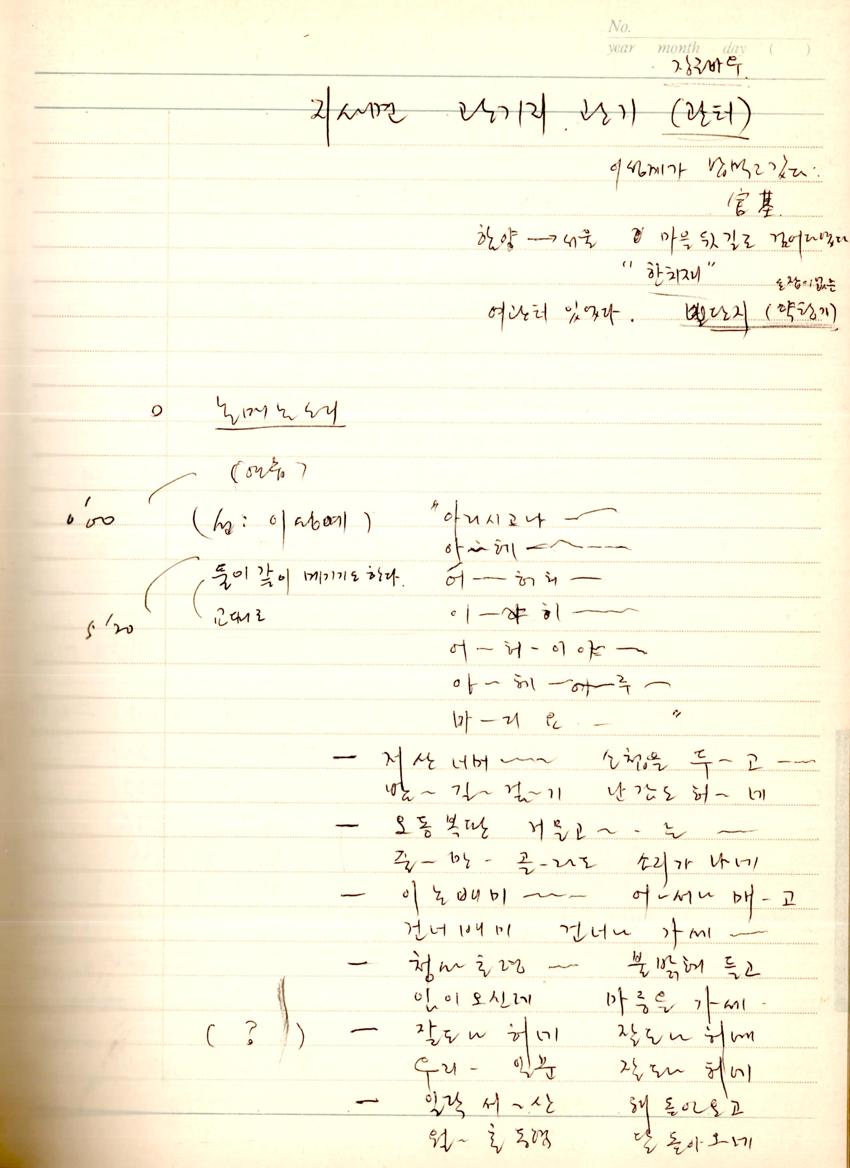 No.
year month day ( )
장금바우
지사면 관기리 관기 (관터)
이성계가
官基
한양 → 서울 마을 뒷길로 걸어다녔다
"한치재"
손잡이 없는
여관터 있었다. 빈단지 (약탕기)
○ 논매는 소리
0'00 (설: 이상예) "아리시고나 —
아 — 헤 —
5'20 둘이 같이 메기기도 한다. 어 — 허허 —
교대로 이 — 야 히 —
어 ~ 허 - 이 야 ~
아 ~ 헤 — 루 ~
마 — 리 요 — "
— 저 산 너머 ~ 소첩을 두 ~ 고 —
밤 ~ 길 ~ 걷 ~ 기 난감도 허 ~ 네
— 오동복판 거문고 ~ 는 —
줄 ~ 만 - 골 - 라도 소리가 나네
— 이 논배미 ~ 어 - 서 - 매 - 고
건너 배미 건너 가세 —
— 청사초롱 ~ 불 밝혀 들고
임이 오신데 마중을 가세
( ? ) — 잘도 허네 잘도 허네
우리 - 일꾼 잘도 허네
— 일락 서 ~ 산 해 돌아오고
월 ~ 출 동령 달 돌아오네